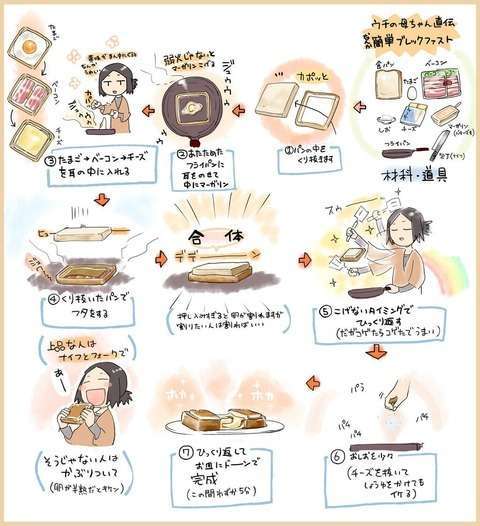 ウチの母ちゃん直伝
簡単ブレックファスト
食パン
たまご
ベーコン
しお
チーズ
マーガリン
フライパン
包丁(ナイフ)
材料・道具
カポッと
①パンの中を
くり抜きます
弱火じゃないと
マーガリンこげる
ジュウゥゥ
②あたためた
フライパンに
耳をのせて
中にマーガリン
たまご
ベーコン
チーズ
③たまご→ベーコン→チーズ
を耳の中に入れる
ヒュー
④くり抜いたパンで
フタをする
合体
デデーン
押し入れすぎると卵が割れますが
割りたい人は割ればいい
スゥ
⑤こげないタイミングで
ひっくり返す
(だがコゲたらコゲたでうまい)
パラ
パラ
パラ
⑥おしおを少々
(チーズを抜いて
しょうゆをかけても
イケる)
ホカ
ホカ
⑦ひっくり返して
お皿にドーンで
完成
(この間わずか5分)
上品な人は
ナイフとフォークで
あー
そうじゃない人は
かぶりついて
(卵が半熟だとキケン)